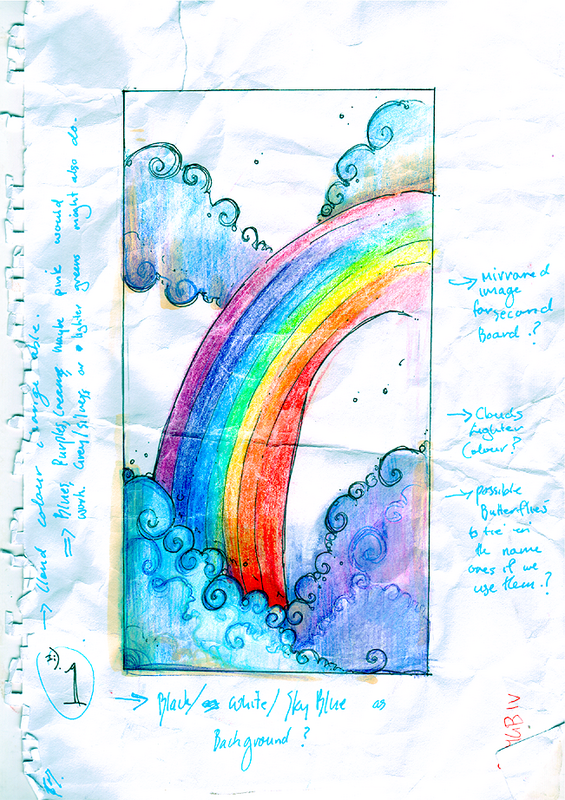 → Cloud colour changeable.
⇒ Blues, Purples, Creams, maybe pink would
work. Grey/Silvers or lighter greens might also do.
→ Mirrored
image
for second
Board.?
→ Clouds
Lighter
Colour?
→ possible
Butterflies
to tie in
the name
ones if we
use them.?
1
→ Black/ White/ Sky Blue as
Background?